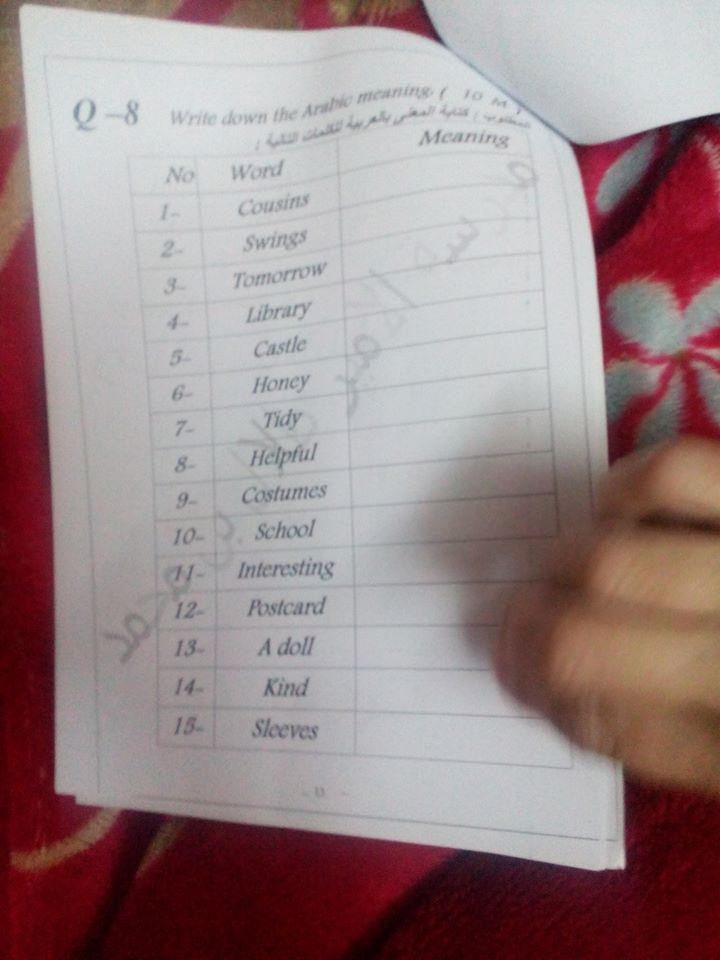 Q-8 Write down the Arabic meaning. ( 10 M )
المطلوب : كتابة المعنى بالعربية للكلمات التالية :
No Word Meaning
1- Cousins
2- Swings
3- Tomorrow
4- Library
5- Castle
6- Honey
7- Tidy
8- Helpful
9- Costumes
10- School
11- Interesting
12- Postcard
13- A doll
14- Kind
15- Sleeves
- 13 -